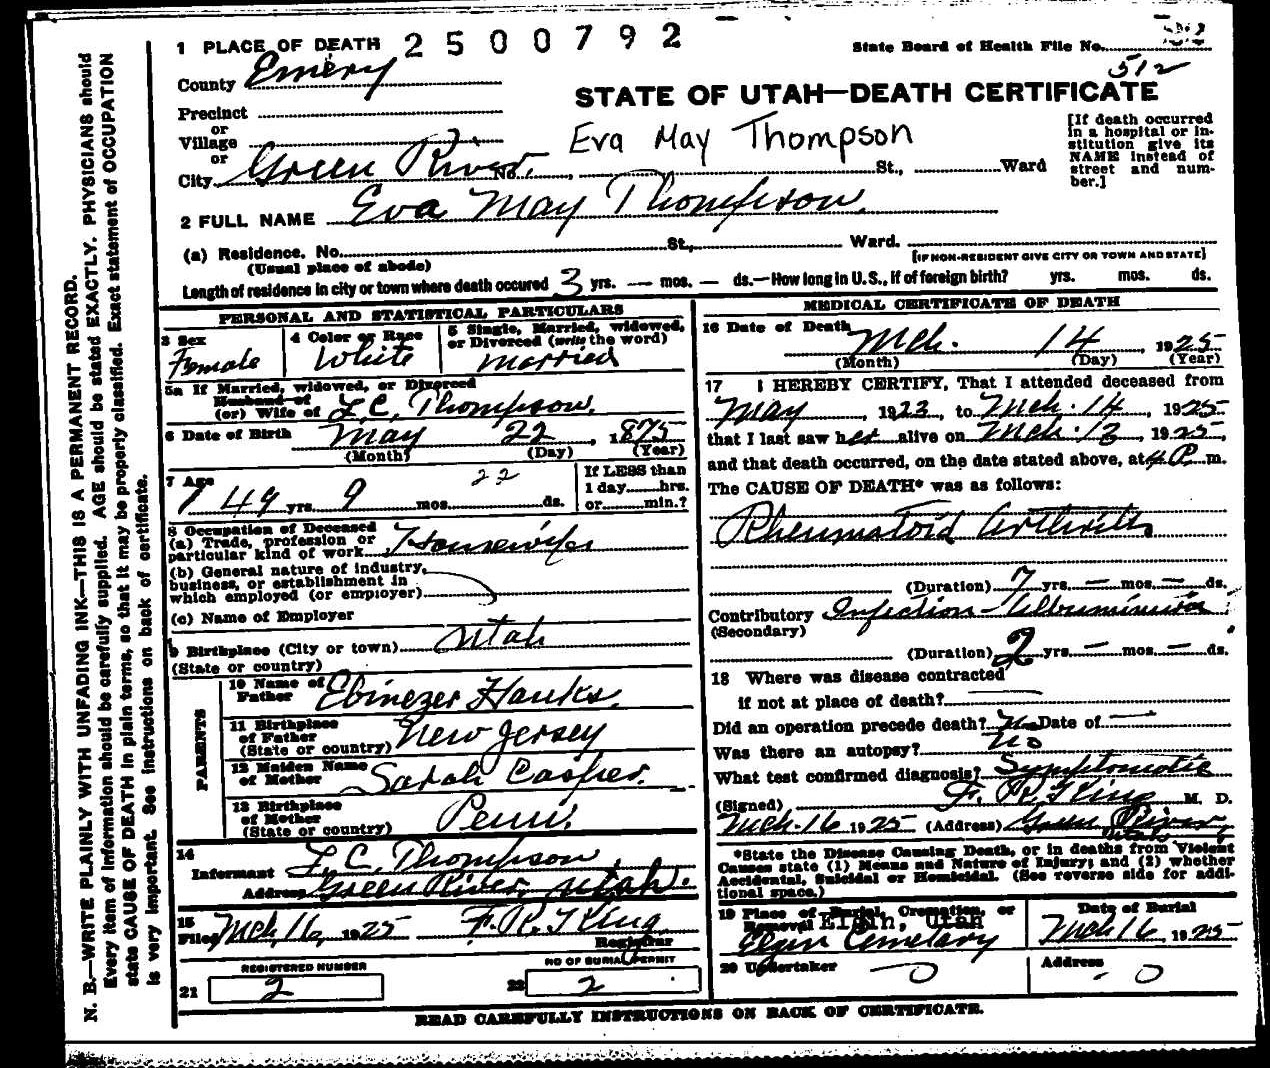 1 PLACE OF DEATH 2500792
State Board of Health File No.
512
County Emery
STATE OF UTAH—DEATH CERTIFICATE
Precinct
or
Village
or
City Green River No. , St., Ward
Eva May Thompson
[If death occurred
in a hospital or in-
stitution give its
NAME instead of
street and num-
ber.]
2 FULL NAME Eva May Thompson
(a) Residence. No. St., Ward.
(Usual place of abode)
[IF NON-RESIDENT GIVE CITY OR TOWN AND STATE]
Length of residence in city or town where death occured 3 yrs. — mos. — ds.—How long in U. S., if of foreign birth? yrs. mos. ds.
PERSONAL AND STATISTICAL PARTICULARS
3 Sex
Female
4 Color or Race
White
5 Single, Married, widowed,
or Divorced (write the word)
Married
5a If Married, widowed, or Divorced
Husband of
(or) Wife of L C, Thompson,
6 Date of Birth May 22, 1875
(Month) (Day) (Year)
7 Age
49 yrs. 9 mos. 22 ds.
If LESS than
1 day......hrs.
or......min.?
8 Occupation of Deceased
(a) Trade, profession or
particular kind of work Housewife
(b) General nature of industry,
business, or establishment in
which employed (or employer)
(c) Name of Employer
9 Birthplace (City or town) Utah
(State or country)
PARENTS
10 Name of
Father Ebinezer Hanks,
11 Birthplace
of Father
(State or country) New Jersey
12 Maiden Name
of Mother Sarah Casper.
13 Birthplace
of Mother
(State or country) Penn.
14
Informant L C, Thompson,
Address Green River, Utah.
15
Filed Mch, 16, 1925 F. R. King
Registrar
REGISTERED NUMBER
21 2
NO OF BURIAL PERMIT
22 2
MEDICAL CERTIFICATE OF DEATH
16 Date of Death
Mch. 14, 1925
(Month) (Day) (Year)
17 I HEREBY CERTIFY, That I attended deceased from
May, 1923, to Mch. 14, 1925
that I last saw her alive on Mch. 13, 1925,
and that death occurred, on the date stated above, at 4 P. m.
The CAUSE OF DEATH* was as follows:
Rheumatoid Arthritis
(Duration) 7 yrs. — mos. — ds.
Contributory Infection - Albuminuria
(Secondary)
(Duration) 2 yrs. — mos. — ds.
18 Where was disease contracted
if not at place of death?
Did an operation precede death? No Date of —
Was there an autopsy? No
What test confirmed diagnosis? Symptomatic
(Signed) F. R. King M. D.
Mch. 16 1925 (Address) Green River, Utah
*State the Disease Causing Death, or in deaths from Violent
Causes state (1) Means and Nature of Injury; and (2) whether
Accidental, Suicidal or Homicidal. (See reverse side for addi-
tional space.)
19 Place of Burial, Cremation, or
Removal Elgin, Utah
Elgin Cemetary
Date of Burial
Mch 16, 1925
20 Undertaker O
Address
- O
READ CAREFULLY INSTRUCTIONS ON BACK OF CERTIFICATE.
N. B.—WRITE PLAINLY WITH UNFADING INK—THIS IS A PERMANENT RECORD.
Every item of information should be carefully supplied. AGE should be stated EXACTLY. PHYSICIANS should
state CAUSE OF DEATH in plain terms, so that it may be properly classified. Exact statement of OCCUPATION
is very important. See instructions on back of certificate.